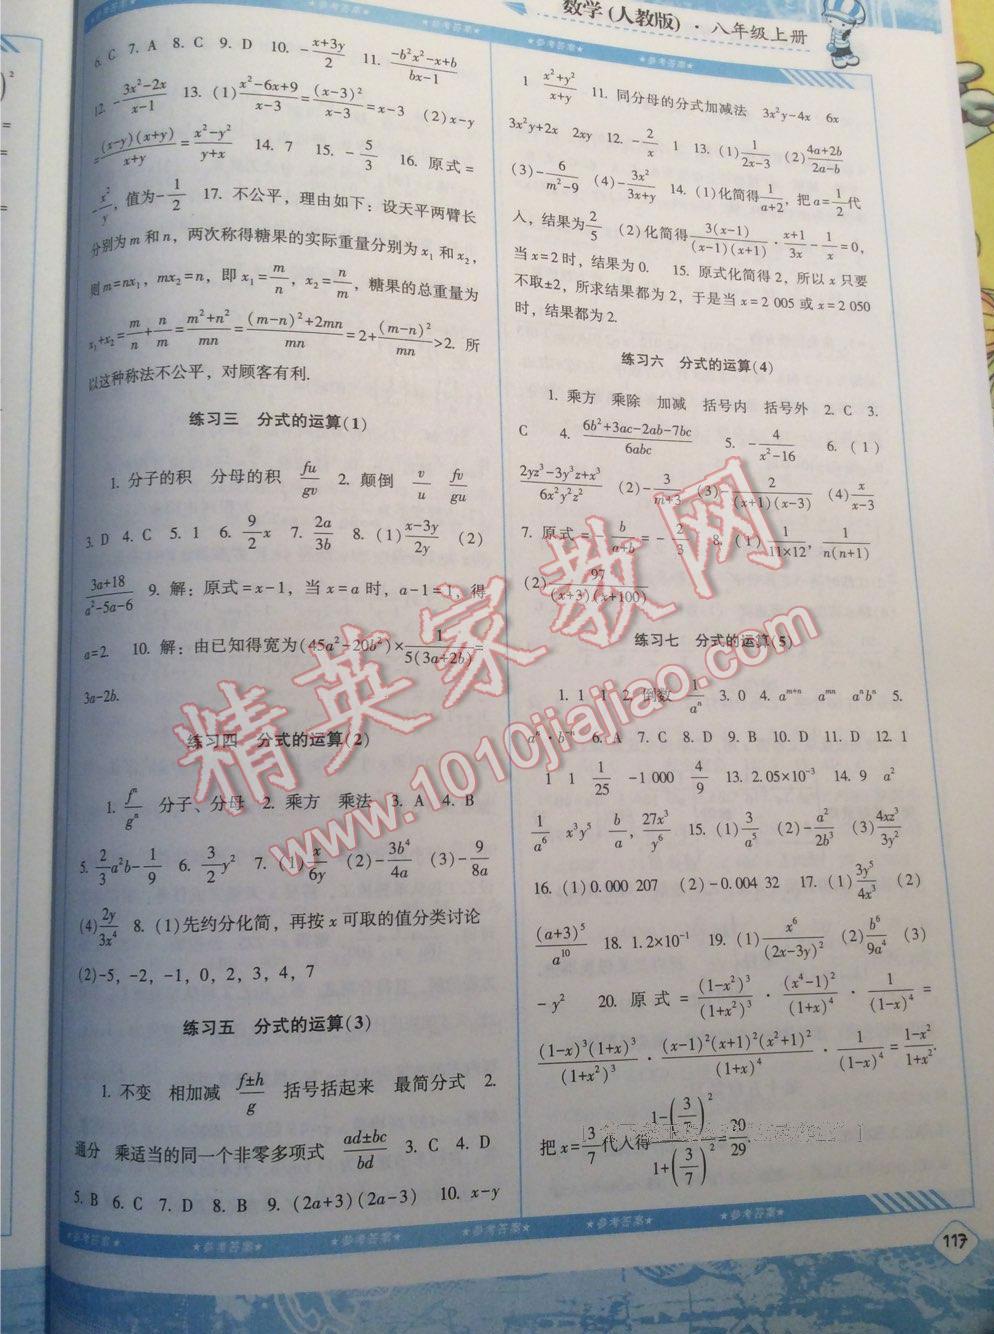 数学(人教版)·八年级上册
6. C 7. A 8. C 9. D 10. -\frac{x+3y}{2} 11. \frac{-b^2x^2-x+b}{bx-1}
12. -\frac{3x^2-2x}{x-1} 13. (1)\frac{x^2-6x+9}{x-3}=\frac{(x-3)^2}{x-3}=x-3 (2)x-y
=\frac{(x-y)(x+y)}{x+y}=\frac{x^2-y^2}{y+x} 14. 7 15. -\frac{5}{3} 16. 原式=
-\frac{x^2}{y}, 值为-\frac{1}{2} 17. 不公平, 理由如下: 设天平两臂长
分别为 m 和 n, 两次称得糖果的实际重量分别为 x_1 和 x_2,
则 m=nx_1, mx_2=n, 即 x_1=\frac{m}{n}, x_2=\frac{n}{m}, 糖果的总重量为
x_1+x_2=\frac{m}{n}+\frac{n}{m}=\frac{m^2+n^2}{mn}=\frac{(m-n)^2+2mn}{mn}=2+\frac{(m-n)^2}{mn}>2. 所
以这种称法不公平, 对顾客有利.
练习三 分式的运算(1)
1. 分子的积 分母的积 \frac{fu}{gv} 2. 颠倒 \frac{v}{u} \frac{fv}{gu}
3. D 4. C 5. 1 6. \frac{9}{2}x 7. \frac{2a}{3b} 8. (1)\frac{x-3y}{2y} (2)
\frac{3a+18}{a^2-5a-6} 9. 解: 原式=x-1, 当 x=a 时, a-1=1, 得
a=2. 10. 解: 由已知得宽为(45a^2-20b^2)×\frac{1}{5(3a+2b)}=
3a-2b.
练习四 分式的运算(2)
1. \frac{f^n}{g^n} 分子、分母 2. 乘方 乘法 3. A 4. B
5. \frac{2}{3}a^2b-\frac{1}{9} 6. \frac{3}{2}y^2 7. (1)\frac{x}{6y} (2)-\frac{3b^4}{4a} (3)-\frac{9}{8a}
(4)\frac{2y}{3x^4} 8. (1)先约分化简, 再按 x 可取的值分类讨论
(2)-5, -2, -1, 0, 2, 3, 4, 7
练习五 分式的运算(3)
1. 不变 相加减 \frac{f±h}{g} 括号括起来 最简分式 2.
通分 乘适当的同一个非零多项式 \frac{ad±bc}{bd} 3. C 4. D
5. B 6. C 7. D 8. B 9. (2a+3)(2a-3) 10. x-y
1 \frac{x^2+y^2}{x+y} 11. 同分母的分式加减法 3x^2y-4x 6x
3x^2y+2x 2xy 12. -\frac{2}{x} 1 13. (1)\frac{1}{2x-3} (2)\frac{4a+2b}{2a-b}
(3)-\frac{6}{m^2-9} (4)-\frac{3x^2}{3x+y} 14. (1)化简得\frac{1}{a+2}, 把 a=\frac{1}{2}代
人, 结果为\frac{2}{5} (2)化简得\frac{3(x-1)}{(x-1)(x+1)}·\frac{x+1}{3x}-\frac{1}{x}=0,
当 x=2 时, 结果为 0. 15. 原式化简得 2, 所以 x 只要
不取±2, 所求结果都为 2, 于是当 x=2 005 或 x=2 050
时, 结果都为 2.
练习六 分式的运算(4)
1. 乘方 乘除 加减 括号内 括号外 2. C 3.
C 4. \frac{6b^2+3ac-2ab-7bc}{6abc} 5. -\frac{4}{x^2-16} 6. (1)
\frac{2yz^3-3y^3z+x^3}{6x^2y^2z^2} (2)-\frac{3}{m+3} (3)-\frac{2}{(x+1)(x-3)} (4)\frac{x}{x-3}
7. 原式=-\frac{b}{a+b}=-\frac{2}{3} 8. (1)\frac{1}{11×12}, \frac{1}{n(n+1)}
(2)\frac{97}{(x+3)(x+100)}
练习七 分式的运算(5)
1. 1 1 2. 倒数 \frac{1}{a^n} 3. 0 4. a^{m+n} a^{mn} a^nb^n 5.
a^n·b^{-n} 6. A 7. C 8. D 9. B 10. D 11. D 12. 1
1 1 \frac{1}{25} -1 000 \frac{4}{9} 13. 2.05×10^{-3} 14. 9 a^2
\frac{1}{a^6} x^3y^5 \frac{b}{a}, \frac{27x^3}{y^6} 15. (1)\frac{3}{a^5} (2)-\frac{a^2}{2b^3} (3)\frac{4xz^3}{3y^2}
16. (1)0.000 207 (2)-0.004 32 17. (1)\frac{3y^5}{4x^3} (2)
\frac{(a+3)^5}{a^{10}} 18. 1.2×10^{-1} 19. (1)\frac{x^6}{(2x-3y)^2} (2)\frac{b^6}{9a^4} (3)
-y^2 20. 原式=\frac{(1-x^2)^3}{(1+x^2)^3}·\frac{(x^4-1)^2}{(1+x)^4}·\frac{1}{(1-x)^4}=
\frac{(1-x)^3(1+x)^3}{(1+x^2)^3}·\frac{(x-1)^2(x+1)^2(x^2+1)^2}{(1+x)^4}·\frac{1}{(1-x)^4}=\frac{1-x^2}{1+x^2}.
把 x=\frac{3}{7}代人得\frac{1-(\frac{3}{7})^2}{1+(\frac{3}{7})^2}=\frac{20}{29}.
精英家教网
www.1010jiajiao.com
★参考答案★ ★参考答案★ ★参考答案★ ★参考答案★ ★参考答案★ ★参考答案★ ★参考答案★
117